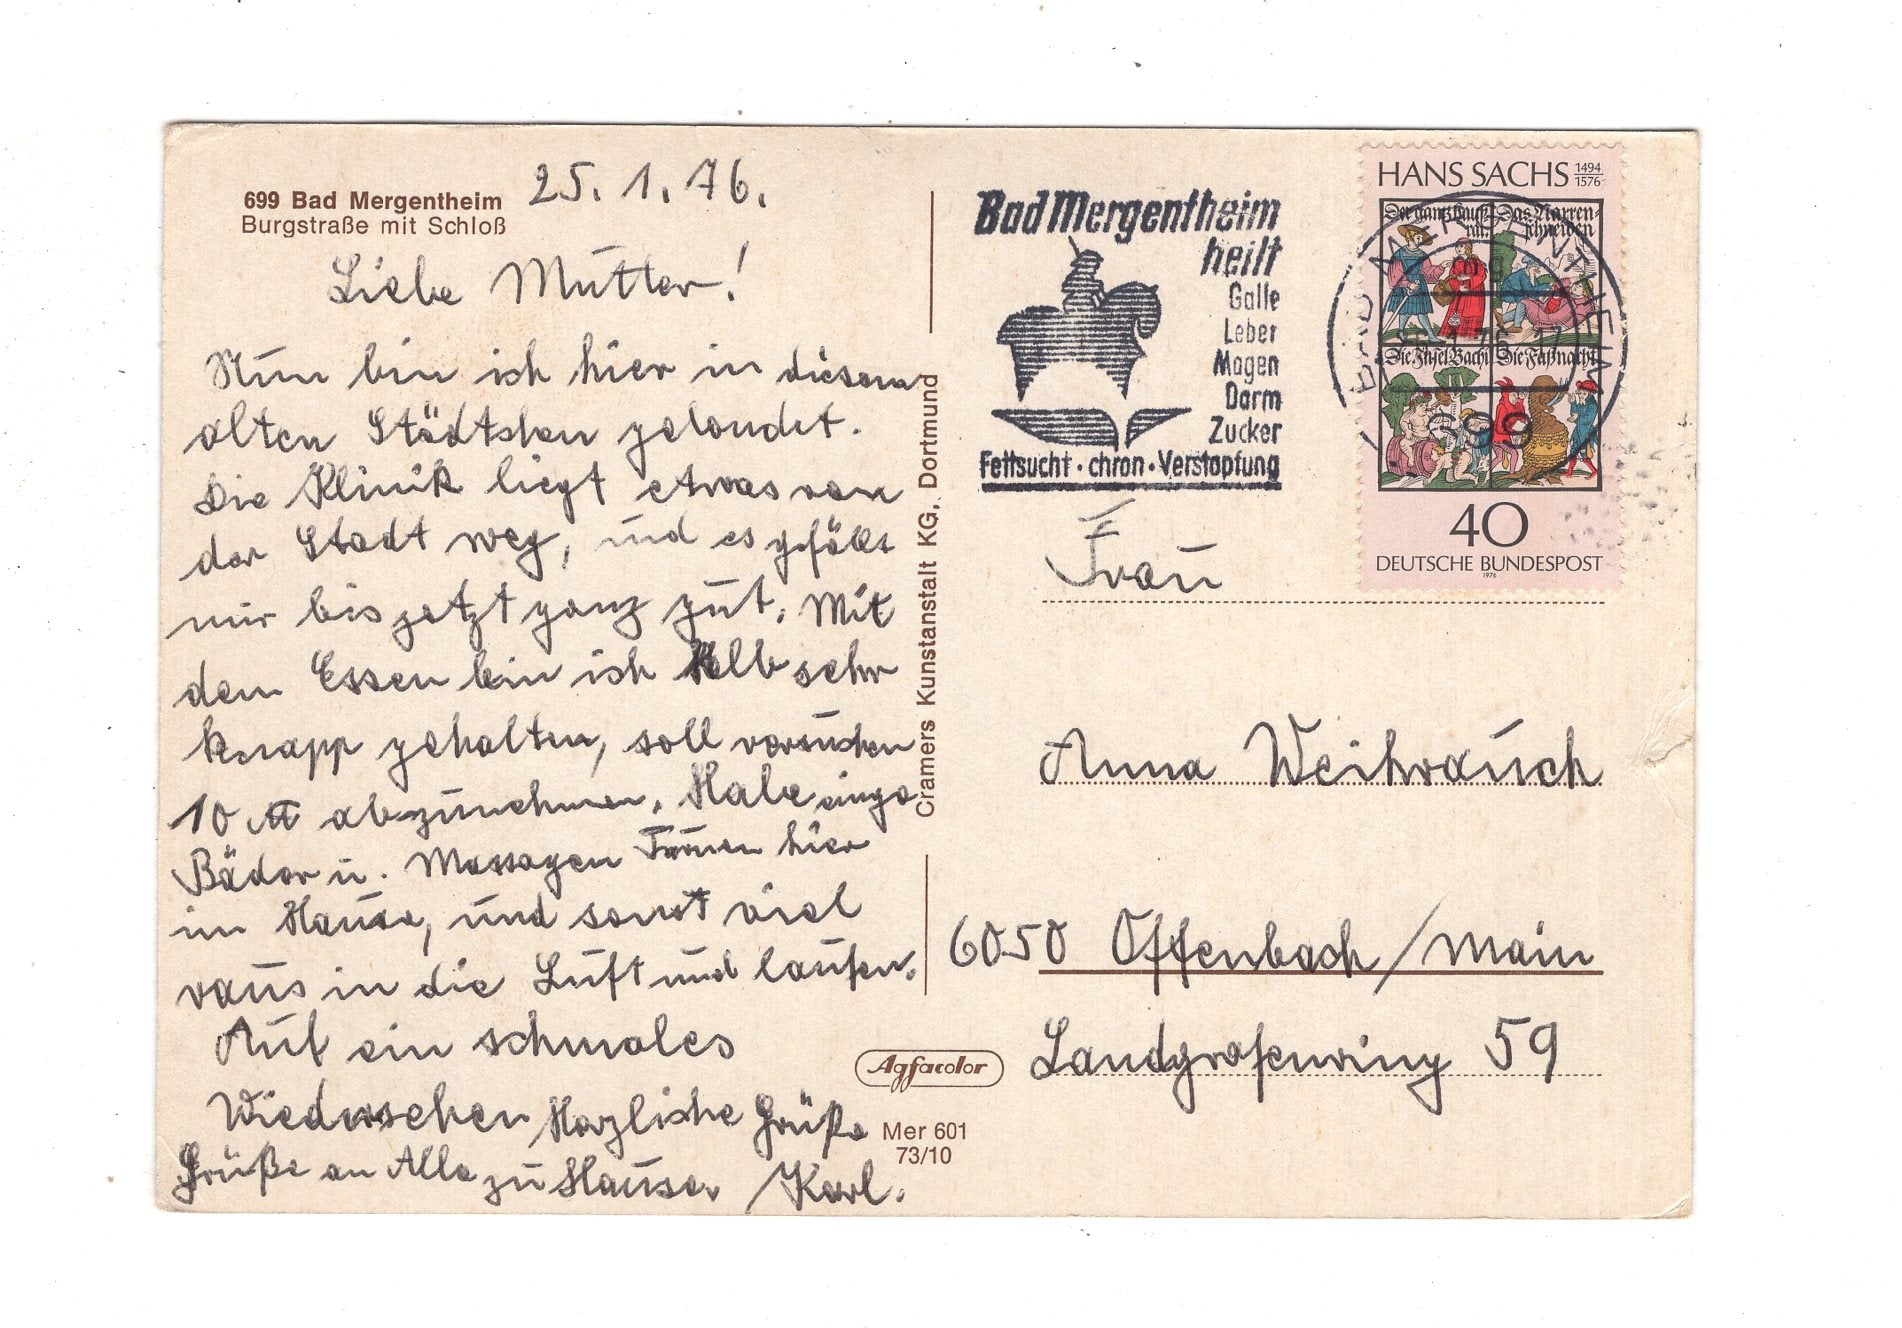 699 Bad Mergentheim
Burgstraße mit Schloß
25. 1. 76.
Liebe Mutter!
Nun bin ich hier in diesem
alten Städtchen gelandet.
Die Klinik liegt etwas von
der Stadt weg, und es gefällt
mir bis jetzt ganz gut. Mit
dem Essen bin ich sehr
knapp gehalten, soll versuchen
10 ℔ abzunehmen. Habe einige
Bäder u. Massagen hier
im Hause, und sonst viel
raus in die Luft und laufen.
Auf ein schmales
Wiedersehen Herzliche Grüße
Grüße an Alle zu Hause. Karl.
Cramers Kunstanstalt KG, Dortmund
Agfacolor
Mer 601
73/10
Bad Mergentheim
heilt
Galle
Leber
Magen
Darm
Zucker
Fettsucht · chron · Verstopfung
HANS SACHS 1494
1576
Der gantz hauß- Das Narren-
rat. schneiden
Die Insel Bachi Die Faßnacht
40
DEUTSCHE BUNDESPOST
1976
BAD MERGENTHEIM
699
Frau
Anna Weihrauch
6050 Offenbach/Main
Landgrafenring 59